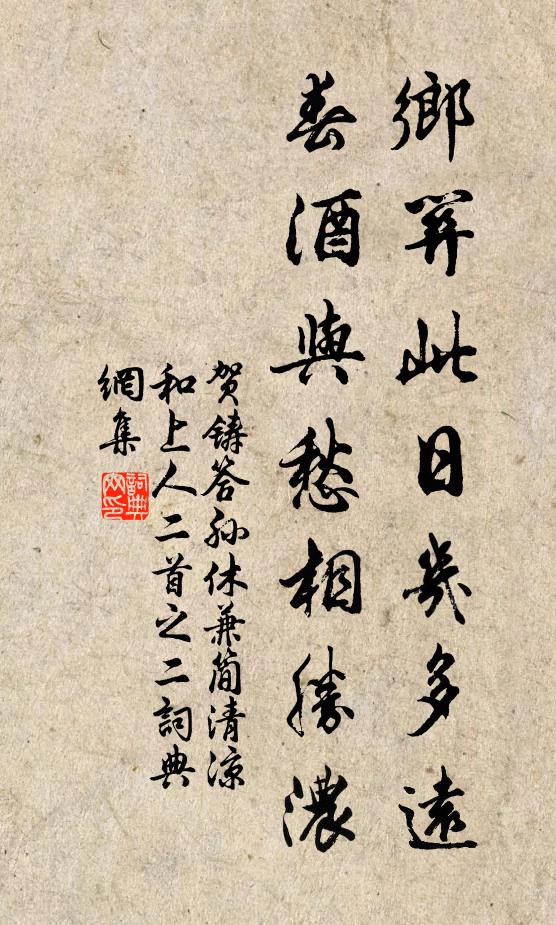 鄉關此日幾多遠
春酒與愁相勝濃
賀鑄答孫休兼簡清涼
和上人二首之二詞典
網集
詞典
网印